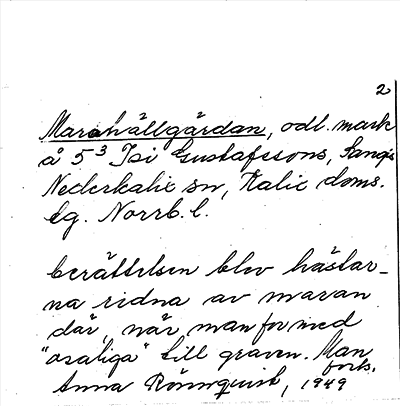 2
Marahällgärdan, odl. mark
å 5³ Isi Gustafssons, Sangis
Nederkalix sn, Kalix doms.
lg. Norrb. l.
berättelsen blev hästar-
na ridna av maran
där, när man for med
"osaliga" till graven. Man
forts.
Anna Rönnquist, 1949